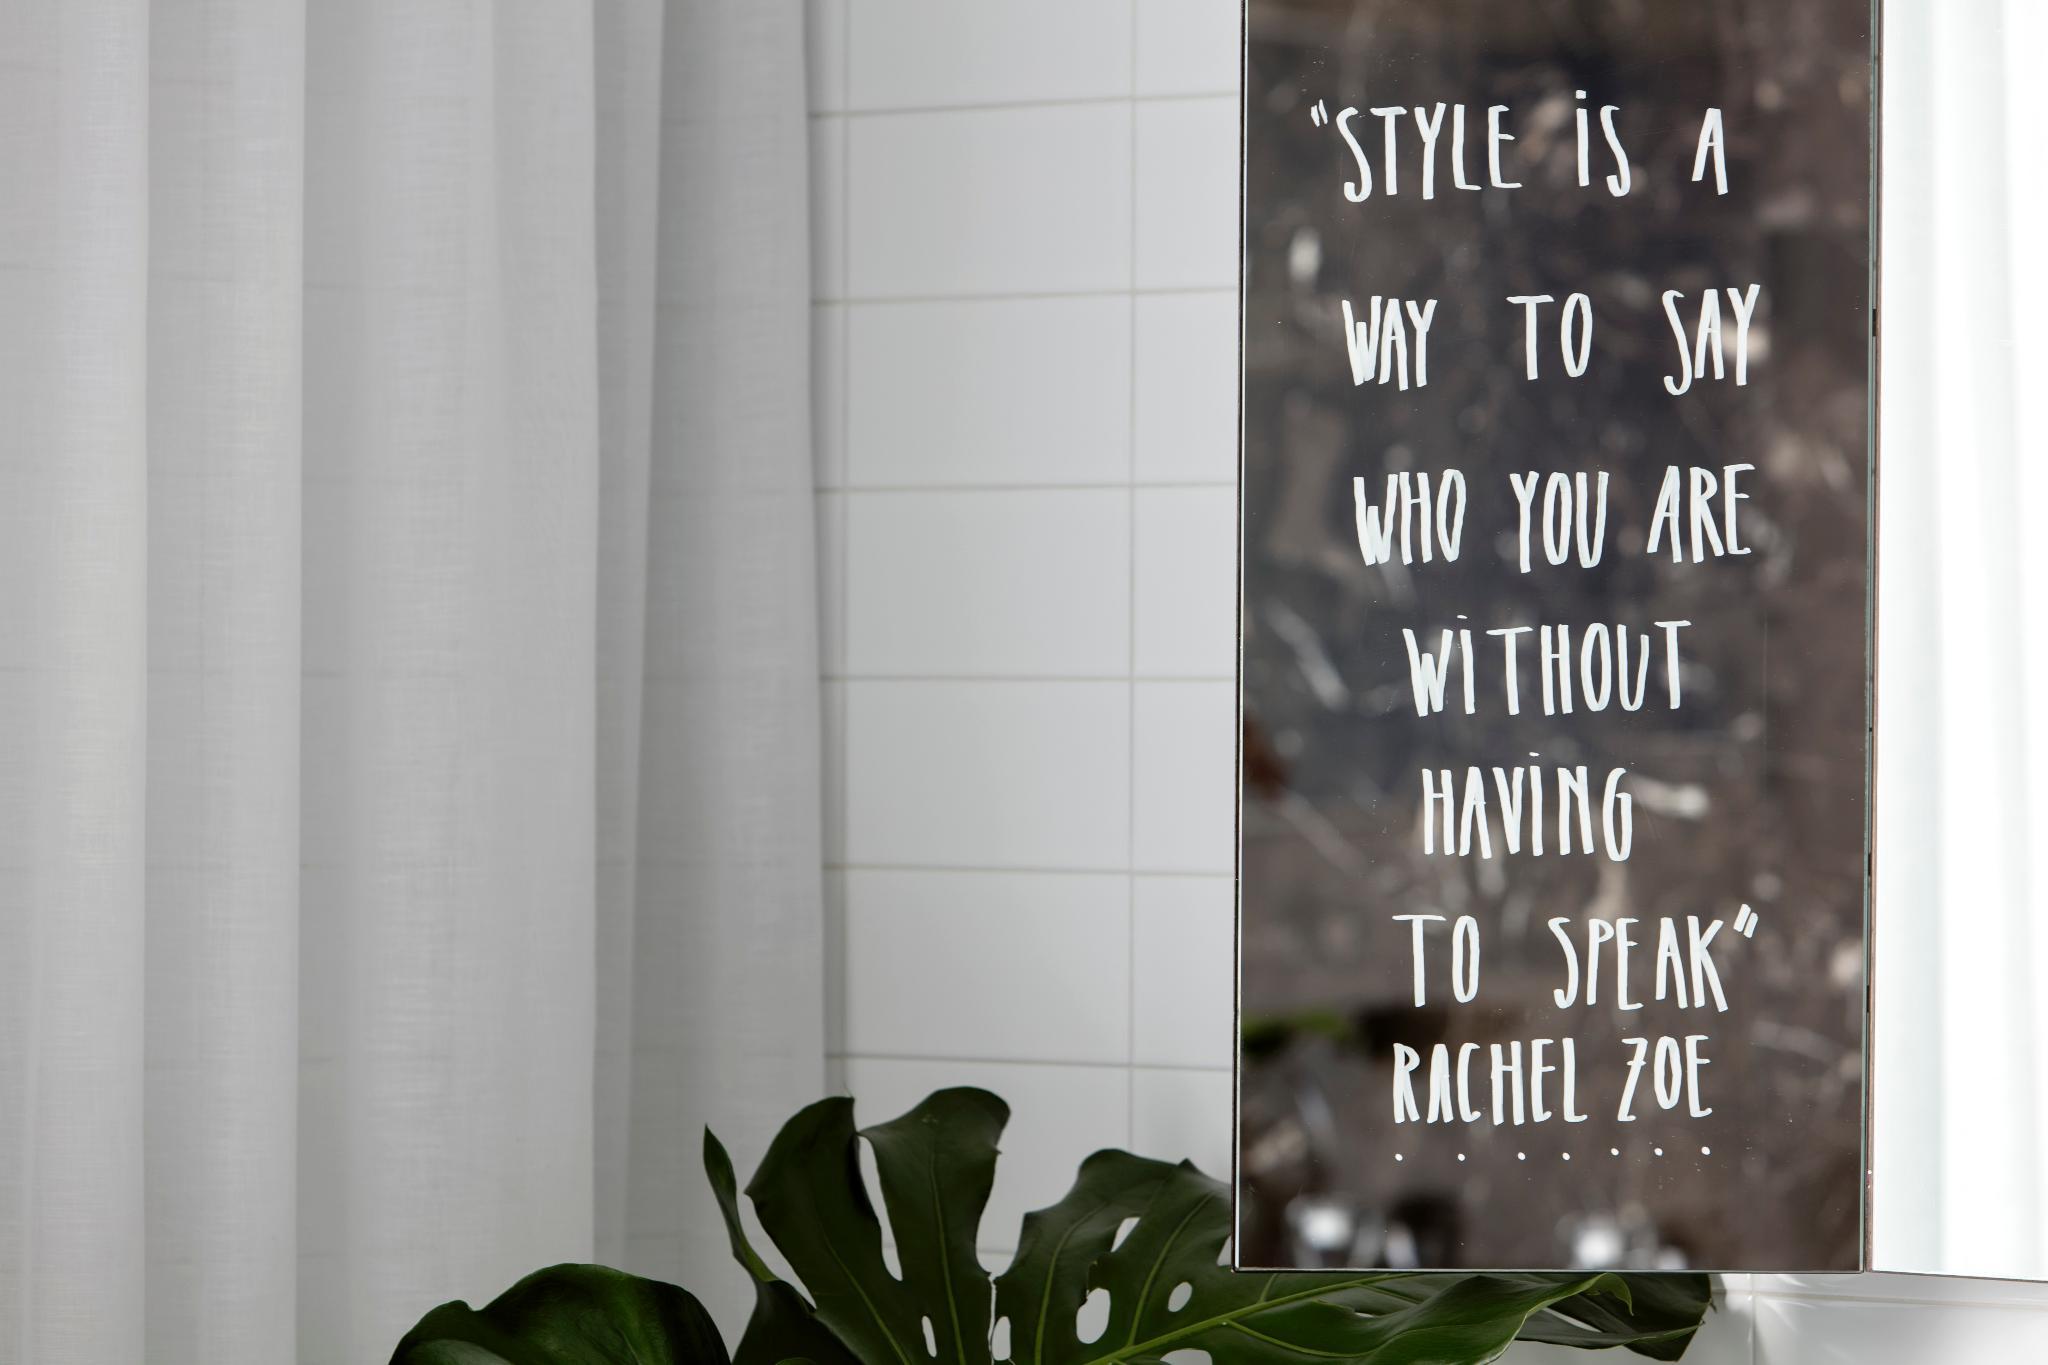 "STYLE iS A
WAY TO SAY
WHO YOU ARE
WiTHOUT
HAViNG
TO SPEAK"
RACHEL ZOE
.......